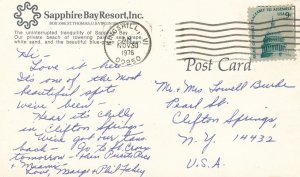 Sapphire Bay Resort, Inc.
The uninterrupted tranquility of Sapphire Bay
Our private beach of towering palms, sea grape
white sand, and the beautiful blue
Hi -
Love it here
It's one of the most
beautiful spots
we've been -
Hear it's chilly
in Clifton Springs -
We're out our tans
back - Go to St. Croix
tomorrow - then Puerto Rico
& Miami
Love, Marge & Phil Fahey
NOV 30
1976
00850
USA 9c
Post Card
Mr & Mrs Lowell
Pearl St.
Clifton Springs,
N.Y. 14432
U.S.A.